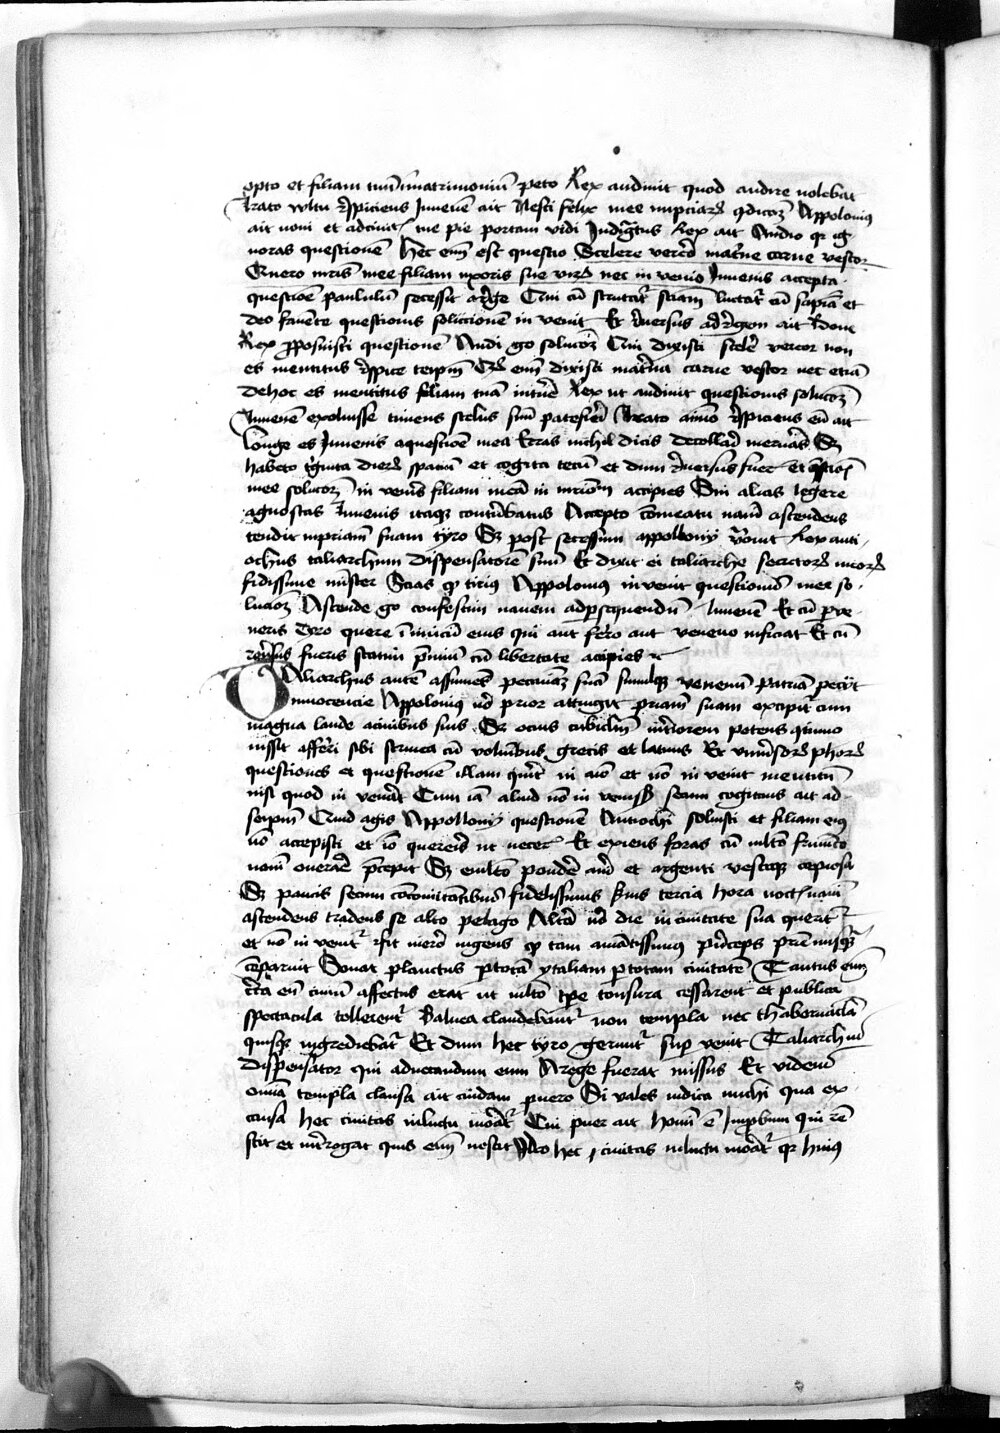 opto et filiam tuā ī matrimoniū peto Rex audiuit quod audire nolebat
Irato vultu respiciens Iuuenē ait Nosti felix mee nupciarꝝ ꝯdicoēꝫ Appolonius
ait noui et ad portam vidi Indignatus Rex ait Audio qr ig
noras questionē Hec em̄ est questio Scelere vercor mat̄ne carne vescor
Quero mee filiam uxoris sue nec in venio Iuuenis accepta
questiōe paululū secessit a rege Cui cū sciam luctat̄ cū sapia et
deo fauēte questionis soluccionē in venit Et reuersus ad regem ait Bone
Rex ꝓposuisti questionē Audi go solucoꝫ Cui dixisti scelē vercor non
es mentitus respice teipm̄ em̄ dixisti mat̄na carne vescor nec etiā
de hoc es mentitus filiam tuā intuē Rex ut audiuit questionis solucoꝫ
Iuuenē exoluisse timens scelus suū patefieri Irato aīmo respiciens eū ait
longe es Iuuenis a questiōe mea Erras nichil dicis decollari merueras Sꝫ
habeto triginta dierꝝ spaciū et cogita tecū et dum reuersus fuer̄ et questioīs
mee solucoꝫ in veneris filiam meā in accipies Sin alias legere
agnoscas Iuuenis itaqꝫ conturbatus Accepto cōmeatu nauē ascendens
tendit in priam suam tyro Sꝫ post secessum appollonij vocuit Rex anti
ochus taliarchum dispensatorē suū Et dixit ei taliarche secretorꝝ meorꝝ
fidissime mīster Scias qꝫ tirius Appolonius in venit questionū mee so
lucoēꝫ Ascende go confestim nauem ad persequendū Iuuenē Et cū perue
neris Tyro quere īimicū eius qui aut ferro aut veneno inficiat Et cū
reūsus fueris statim p̄miū cū libertate accipies
Taliarchus autē assumēs pecuniā suā simulqꝫ venenū patriā pecijt
Innocencie Appolonius vero prior attingit priam suam excipit̄ cum
magna laude a ciuibus suis Sꝫ ocius cubiclm̄ interiorem petens
iussit afferri sibi scrinea cū voluībus grecis et latinis Et vniuersorꝝ phorꝝ
questiones et questionē illam querit in aīo et nō in venit mentitū
nisi quod in venerat Cum iā aliud nō in venisset secum cogitans ait ad
seipm̄ Quid agis Appollonij questionē Antiochi soluisti et filiam eius
nō accepisti et iō quereris ut necer̄ Et exiens foras cū multo frumēto
nauī onerare p̄cepit Sꝫ multo pondere auri et argenti vestesqꝫ copiosa
Sꝫ paucis secum comitantibus fidelissimis suis tercia hora noctis nauim
ascendens tradens se alto pelago Altera vero die in ciuitate sua querit̄
et nō in venit̄ fit meror ingens qꝫ tam amātissimus p̄nceps prie nusqꝫ
cōparuit Sonat planctus ꝑ totā ytaliam ꝑ totam ciuitatē Tantus em̄
circa eū ciuiū affectus erat ut multo tp̄e tonsura cessarent et publica
spectacula tollerent̄ Balnea claudebant̄ non templa nec thabernacla
quisqꝫ ingrediebat̄ Et dum hec tyro gerunt̄ sup venit Taliarchus
dispensator qui ad necandum eum A rege fuerat missus Et videns
omīa templa clausa ait cuidam puero Si vales indica michi qua ex
causa hec ciuitas in luctu morat̄ Cui puer ait Homī ē Improbum qui rē
scit et interrogat quis em̄ nescit Ideo hec ciuitas in luctu morat̄ qr huius